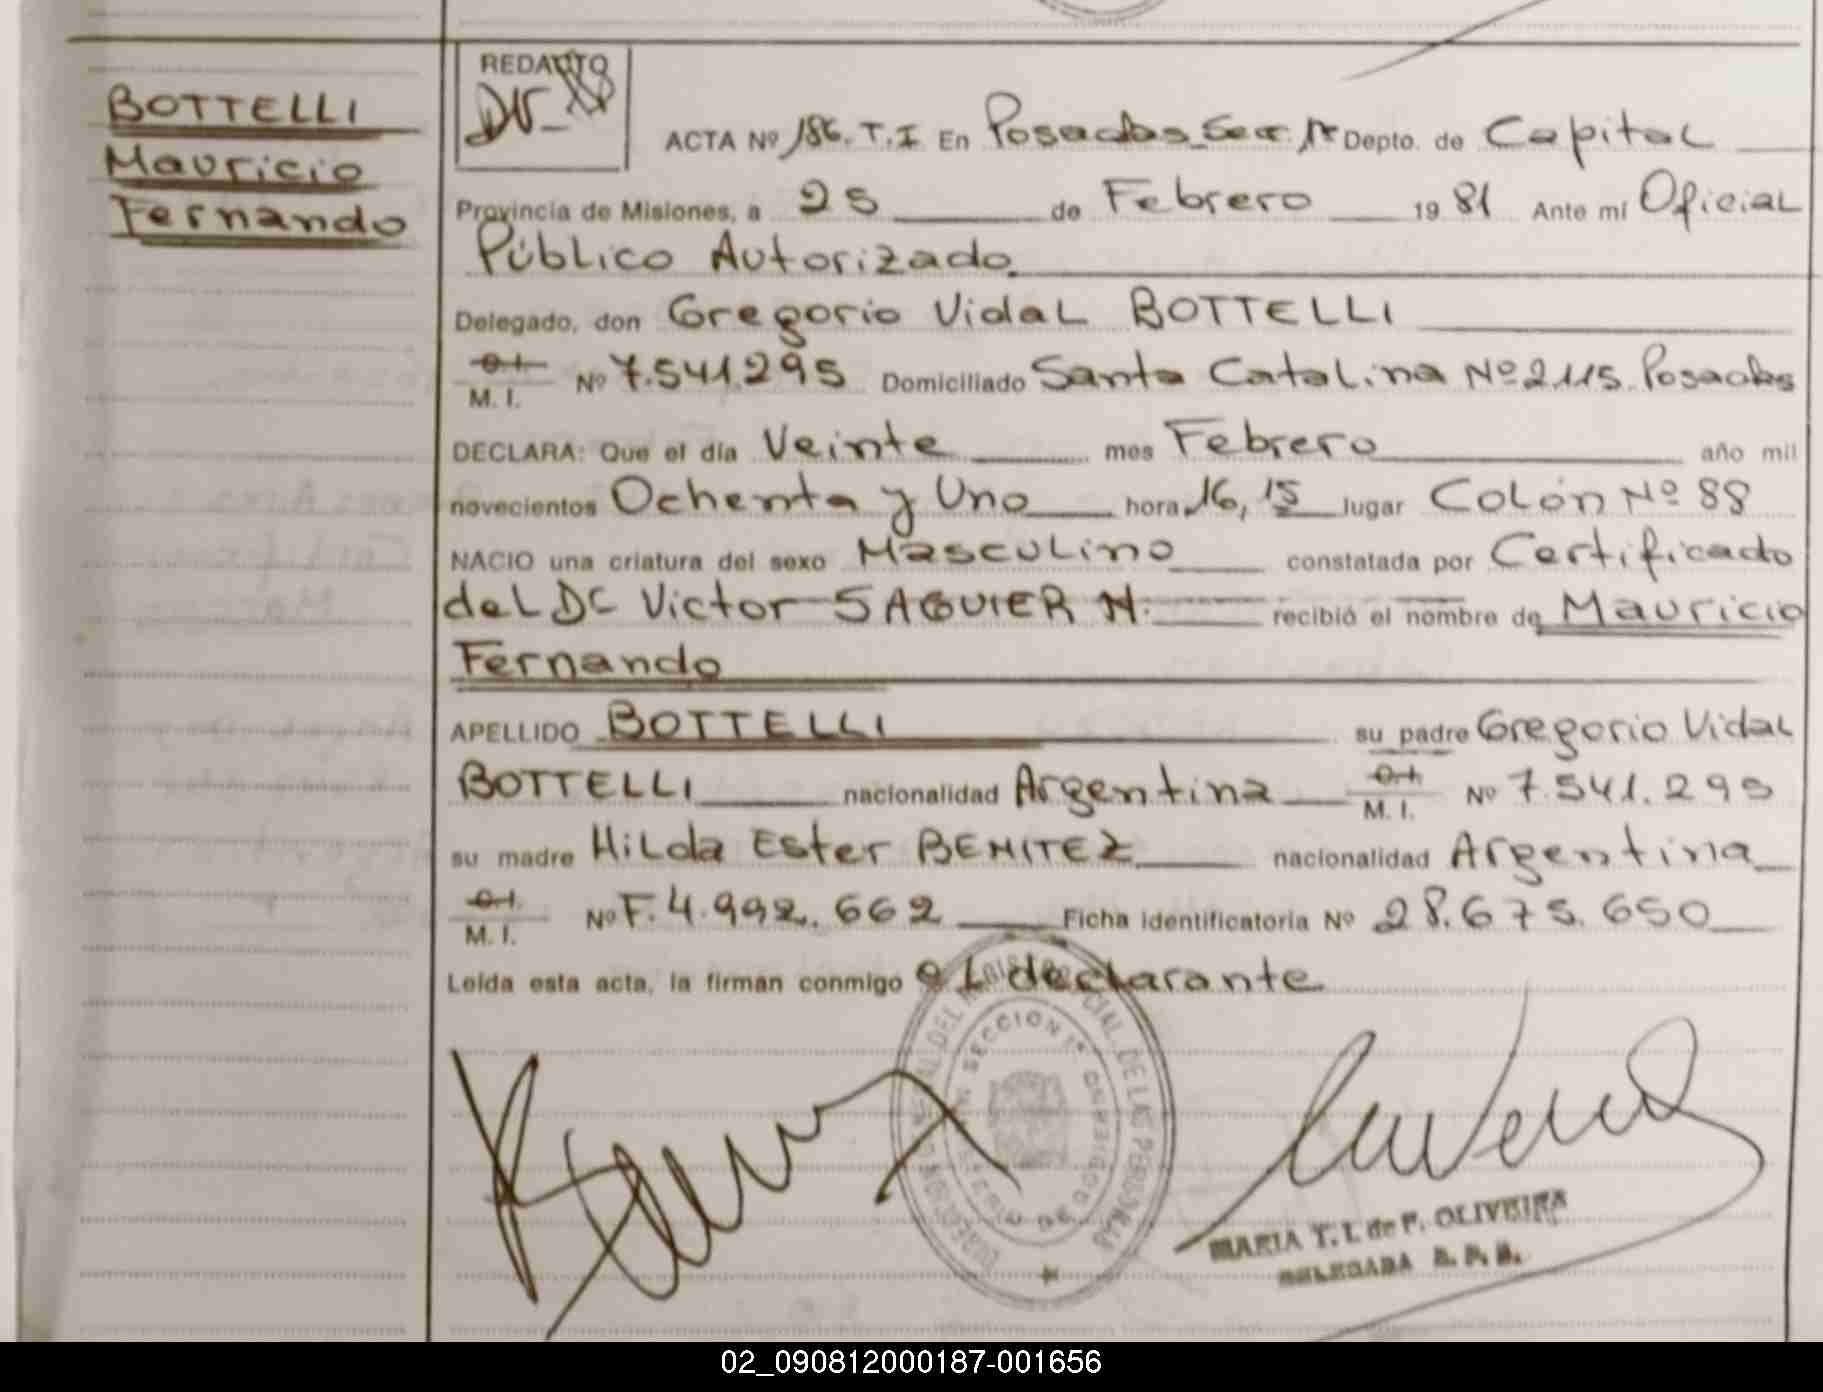 BOTTELLI
Mauricio
Fernando
REDACTO
ACTA Nº 186. T. I En Posadas Sec. 1ª Depto. de Capital
Provincia de Misiones, a 25 de Febrero 19 81 Ante mí Oficial
Público Autorizado.
Delegado, don Gregorio Vidal BOTTELLI
M. I. Nº 7.541.295 Domiciliado Santa Catalina Nº 2115. Posadas
DECLARA: Que el día Veinte mes Febrero año mil
novecientos Ochenta y Uno hora 16,15 lugar Colón Nº 88
NACIO una criatura del sexo Masculino constatada por Certificado
del DC Victor SAGUIER N. recibió el nombre de Mauricio
Fernando
APELLIDO BOTTELLI su padre Gregorio Vidal
BOTTELLI nacionalidad Argentina M. I. Nº 7.541.295
su madre Hilda Ester BENITEZ nacionalidad Argentina
M. I. Nº F. 4.992.662 Ficha identificatoria Nº 28.675.650
Leída esta acta, la firman conmigo el declarante
SECCION 1ª
MARIA T. I. de F. OLIVEIRA
DELEGADA
02_090812000187-001656